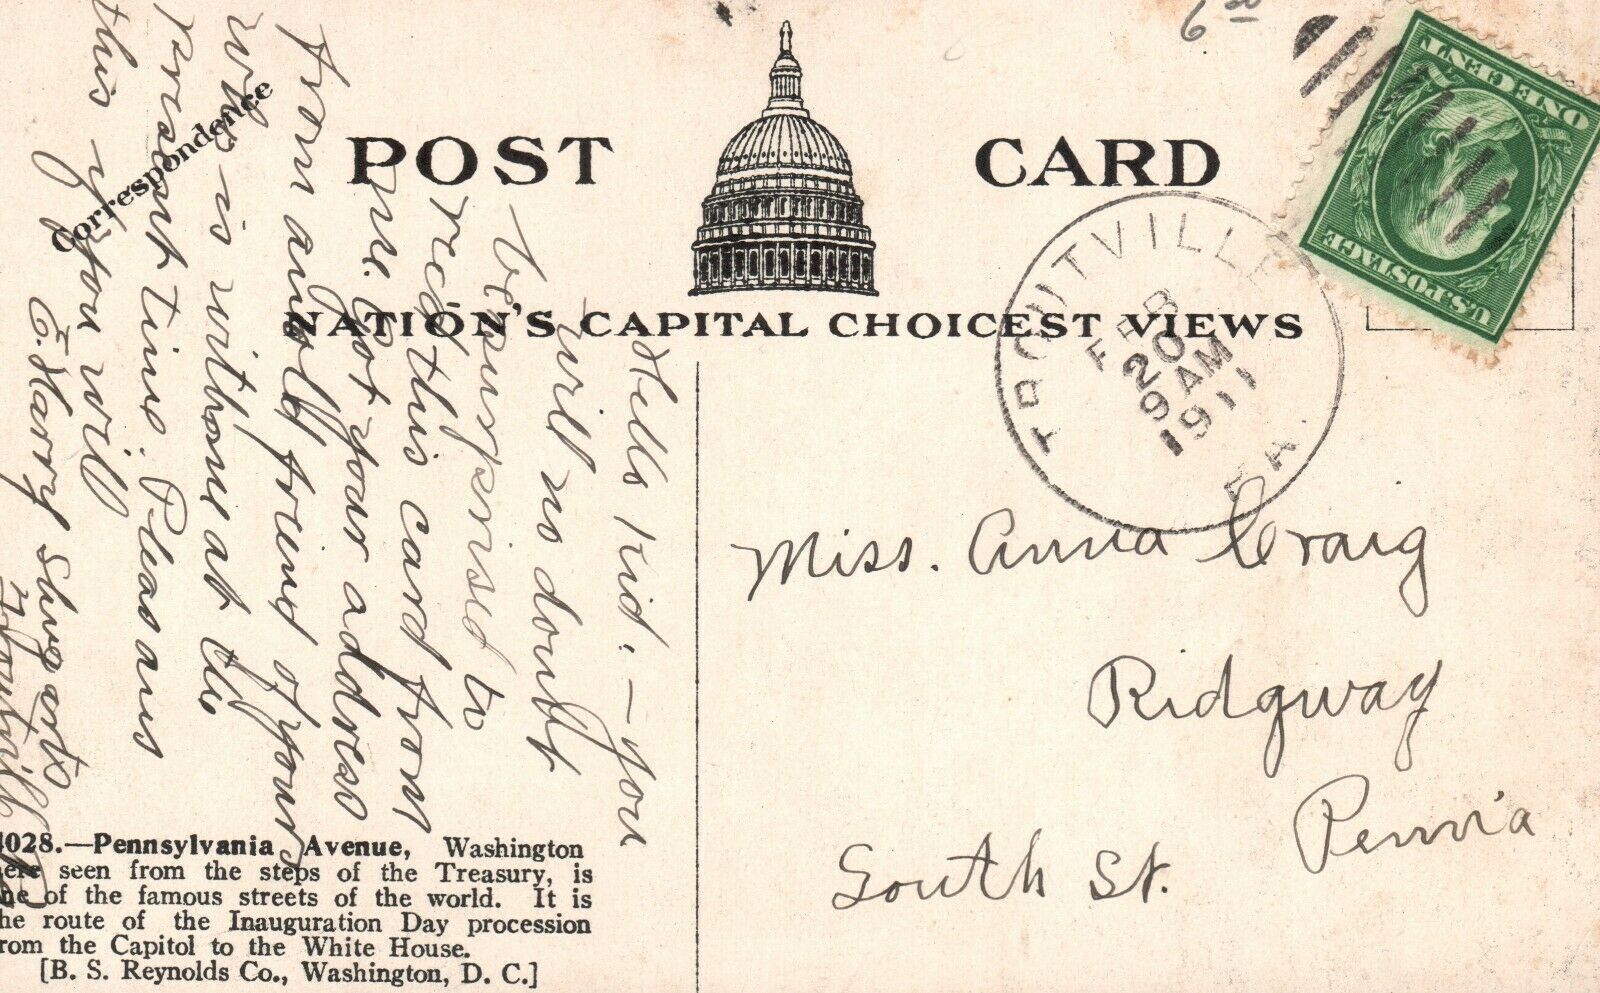 6 30
POST CARD
NATION'S CAPITAL CHOICEST VIEWS
Correspondence
ONE CENT
U.S. POSTAGE
TROUTVILLE
FEB
20
9 AM
1911
PA.
Hello Kid. — you
will no doubt
be surprised to
rec'd this card from
me. Got your address
from an old friend of yours
who is with me at the
present time. Please ans
this if you will
E. Harry Shugarts
Troutville
Pa
Miss. Anna Craig
Ridgway
Penn'a
South St.
4028.—Pennsylvania Avenue, Washington
ere seen from the steps of the Treasury, is
ne of the famous streets of the world. It is
he route of the Inauguration Day procession
rom the Capitol to the White House.
[B. S. Reynolds Co., Washington, D. C.]